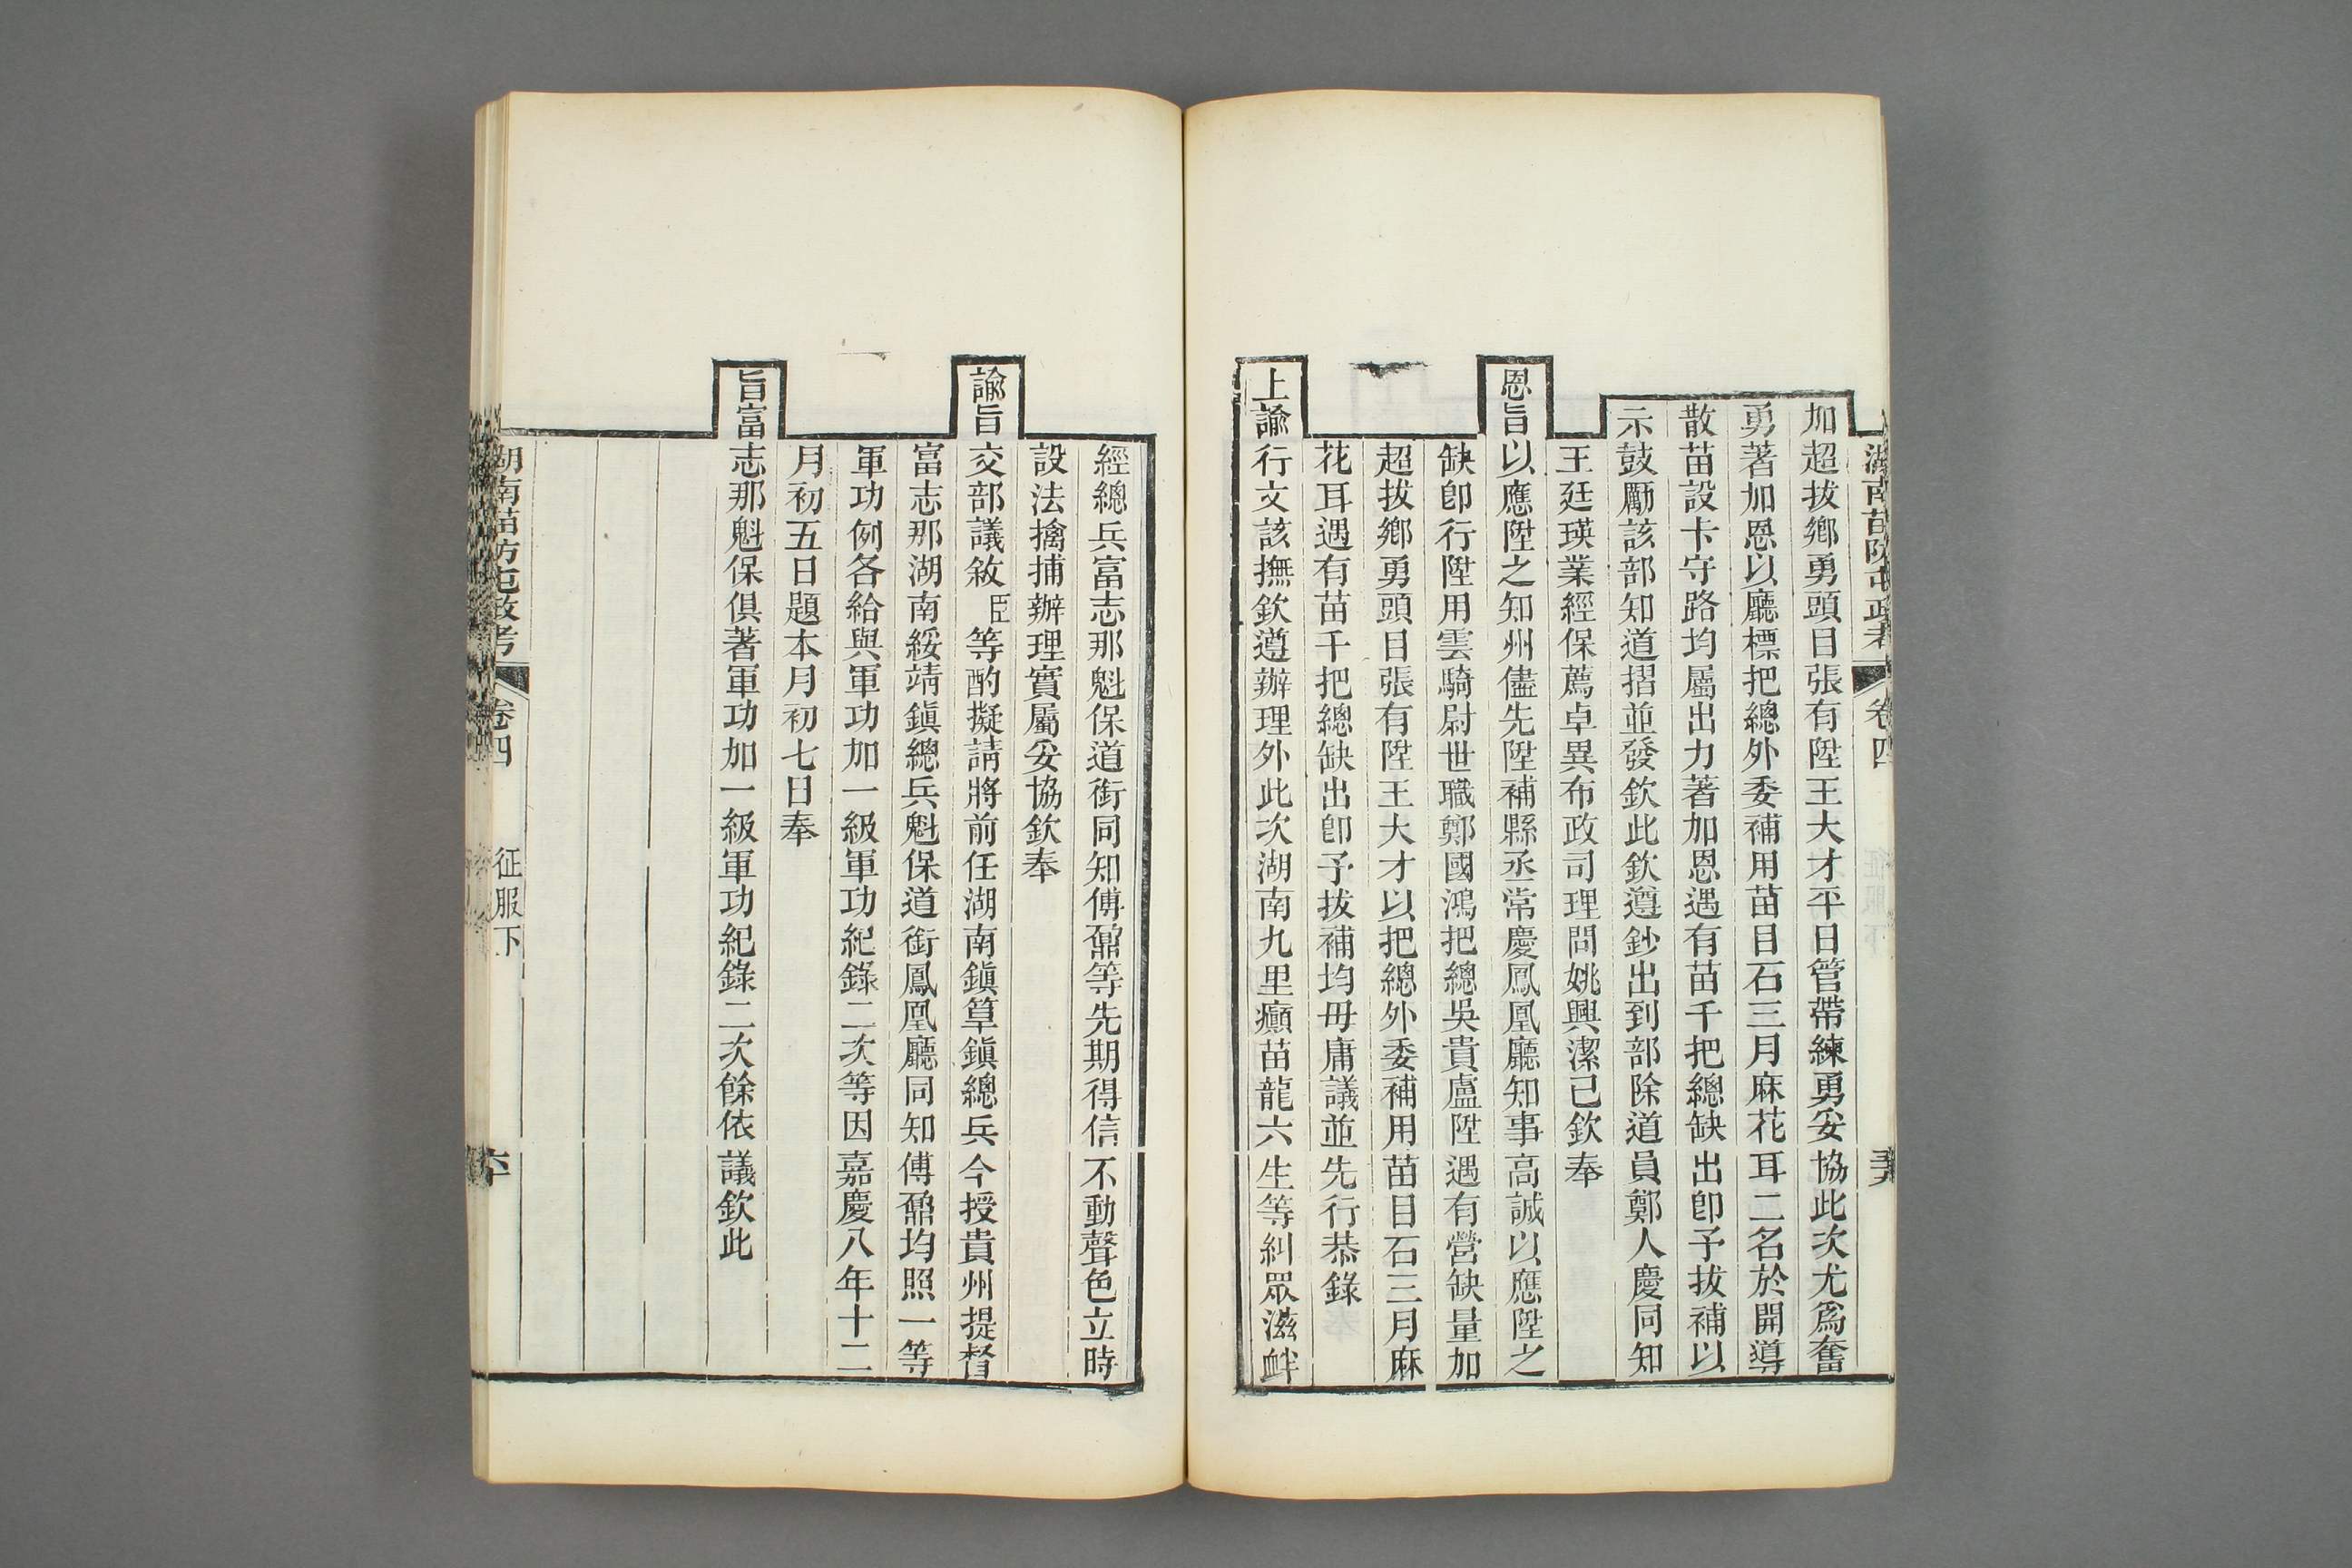 湖南苗防屯政考 卷四
加超拔鄉勇頭目張有陞王大才平日管帶練勇妥協此次尤爲奮
勇著加恩以廳標把總外委補用苗目石三月麻花耳二名於開導
散苗設卡守路均屬出力著加恩遇有苗千把總缺出卽予拔補以
示鼓勵該部知道摺並發欽此欽遵鈔出到部除道員鄭人慶同知
王廷瑛業經保薦卓異布政司理問姚興潔已欽奉
恩旨以應陞之知州儘先陞補縣丞常慶鳳凰廳知事高誠以應陞之
缺卽行陞用雲騎尉世職鄭國鴻把總吳貴盧陞遇有營缺量加
超拔鄉勇頭目張有陞王大才以把總外委補用苗目石三月麻
花耳遇有苗千把總缺出卽予拔補均毋庸議並先行恭錄
上諭行文該撫欽遵辦理外此次湖南九里癲苗龍六生等糾眾滋衅
經總兵富志那魁保道銜同知傅鼐等先期得信不動聲色立時
設法擒捕辦理實屬妥協欽奉
諭旨交部議敘臣等酌擬請將前任湖南鎭筸鎭總兵今授貴州提督
富志那湖南綏靖鎭總兵魁保道銜鳳凰廳同知傅鼐均照一等
軍功例各給與軍功加一級軍功紀錄二次等因嘉慶八年十二
月初五日題本月初七日奉
旨富志那魁保俱著軍功加一級軍功紀錄二次餘依議欽此
湖南苗防屯政考 卷四 征服下